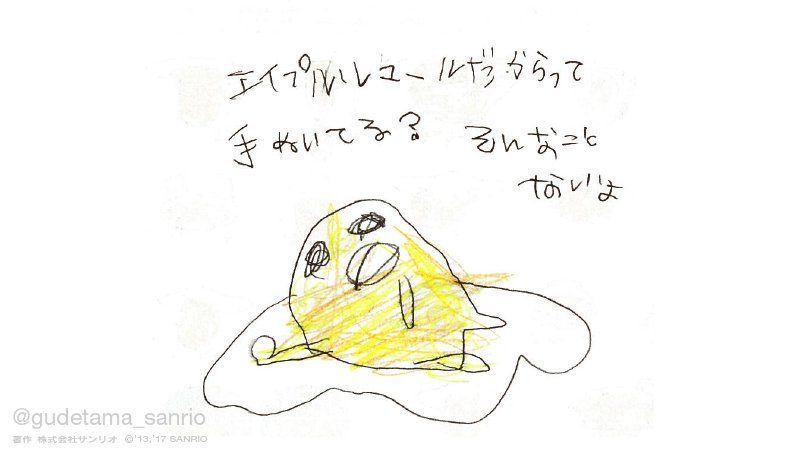 エイプルいレュールだろからって
手ぬいてる? そんなこと
ないよ
@gudetama_sanrio
著作 株式会社サンリオ ©'13,'17 SANRIO